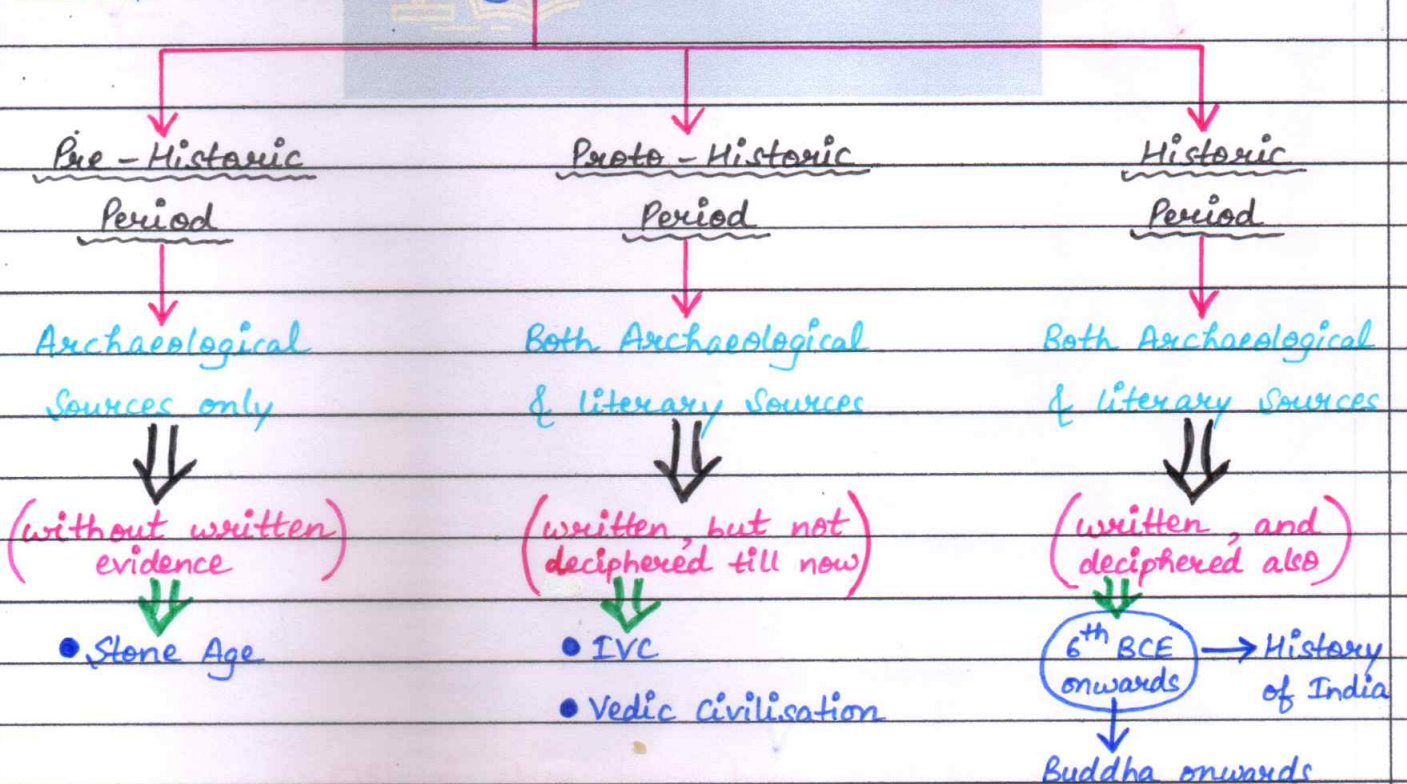 Pre-Historic
Period
Archaeological
Sources only
(without written
evidence)
• Stone Age
Proto-Historic
Period
Both Archaeological
& literary Sources
(written, but not
deciphered till now)
• IVC
• Vedic Civilisation
Historic
Period
Both Archaeological
& literary Sources
(written, and
deciphered also)
6th BCE
onwards
→ History
of India
Buddha onwards